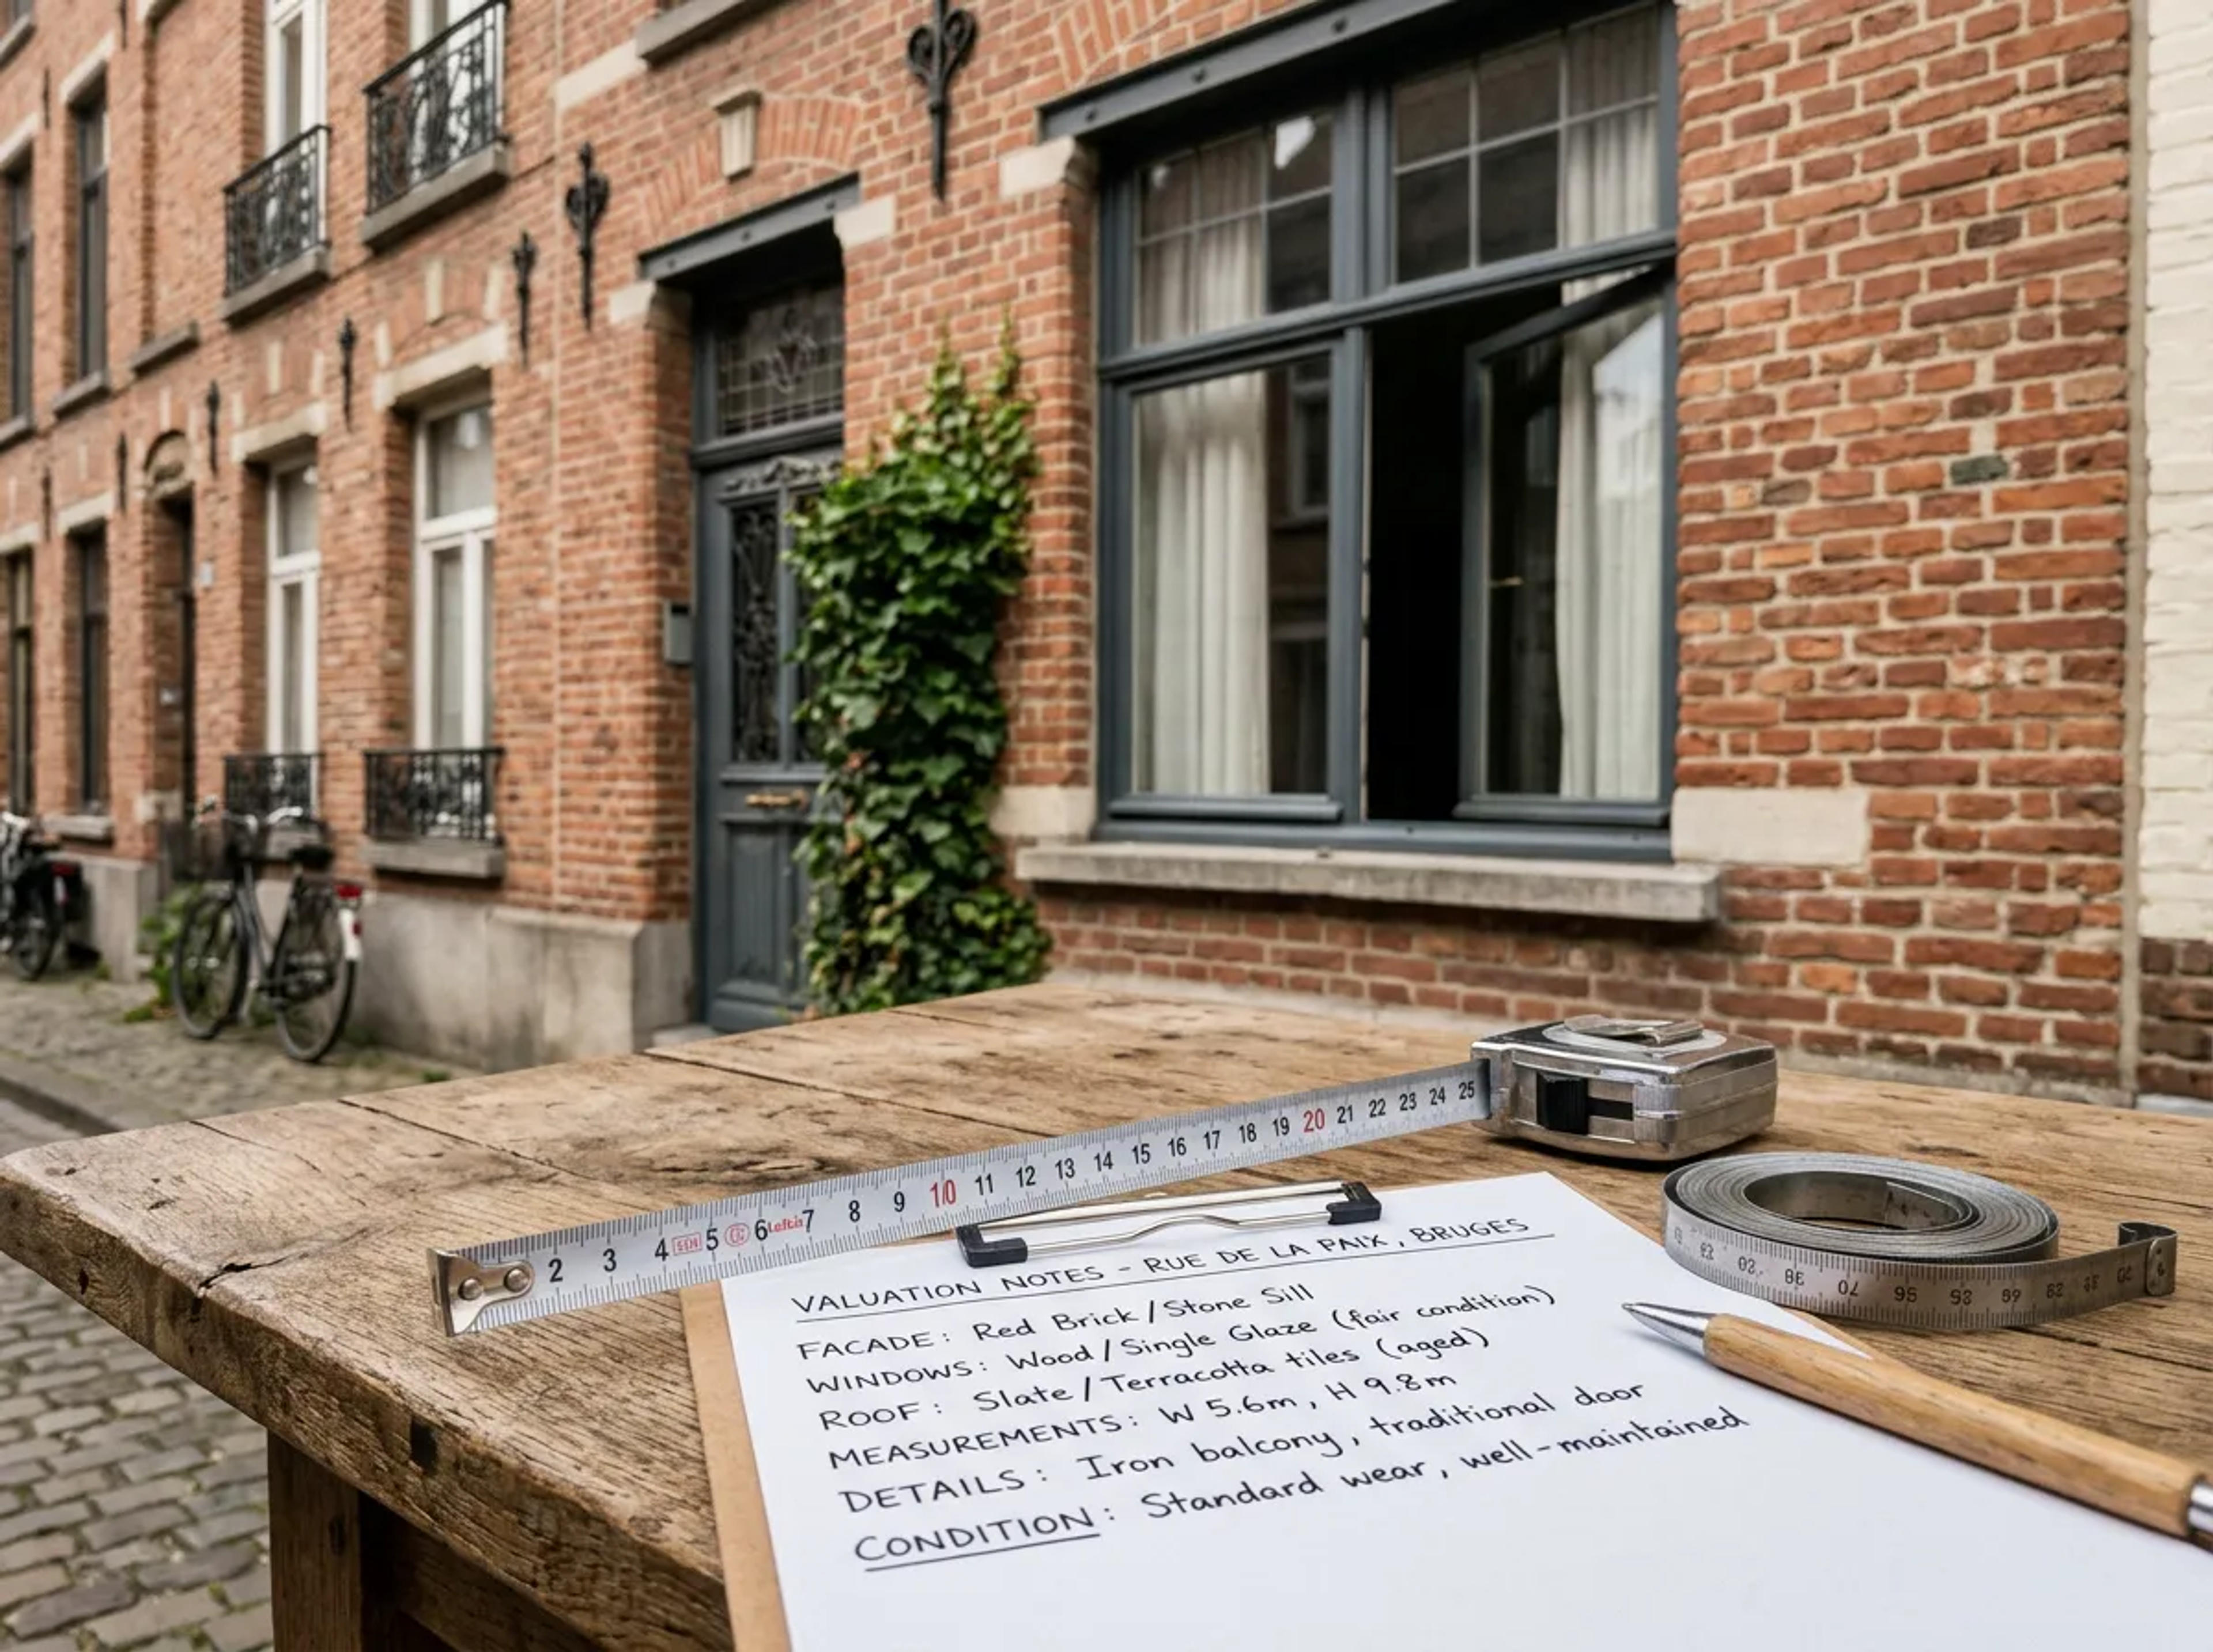 VALUATION NOTES - RUE DE LA PAIX, BRUGES
FACADE: Red Brick/Stone Sill
WINDOWS: Wood/Single Glaze (fair condition)
ROOF: Slate/Terracotta tiles (aged)
MEASUREMENTS: W 5.6m, H 9.8m
DETAILS: Iron balcony, traditional door
CONDITION: Standard wear, well-maintained
2 3 4 5 6 7 8 9 10 11 12 13 14 15 16 17 18 19 20 21 22 23 24 25